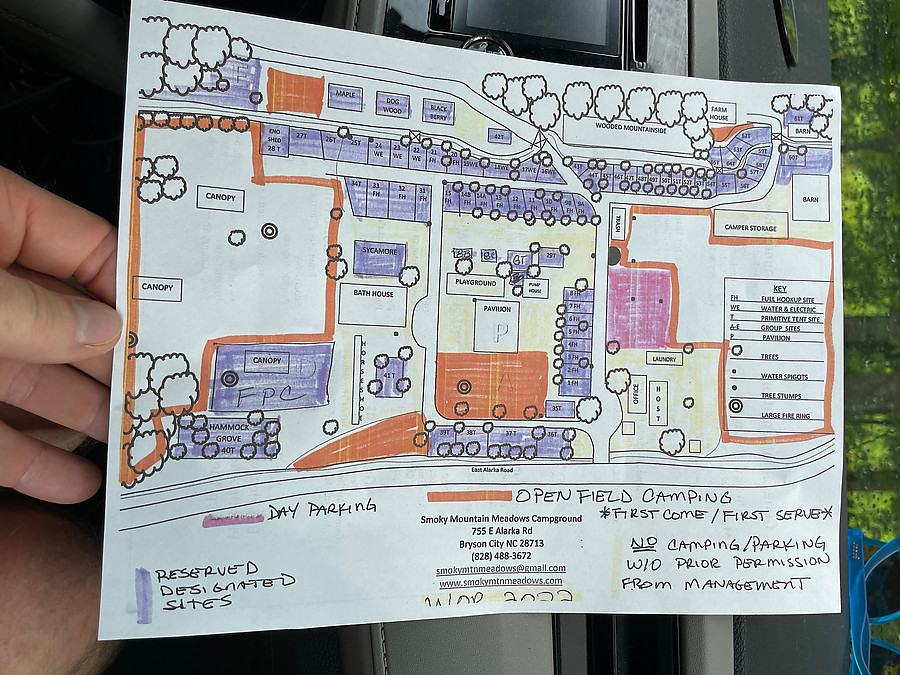 MAPLE
DOG
WOOD
BLACK
BERRY
42T
WOODED MOUNTAINSIDE
FARM
HOUSE
61T
BARN
ENO
SHED
28 T
27T
26T
25T
24
WE
23
WE
22
WE
60T
59T
BARN
CANOPY
34T
33
FH
32
FH
31
FH
TRASH
CAMPER STORAGE
SYCAMORE
29T
PLAYGROUND
PUMP
HOUSE
CANOPY
BATH HOUSE
PAVILION
P
8 FH
7 FH
6 FH
5 FH
4 FH
3 FH
2 FH
1 FH
KEY
FH FULL HOOKUP SITE
WE WATER & ELECTRIC
T PRIMITIVE TENT SITE
A-E GROUP SITES
P PAVILION
TREES
WATER SPIGOTS
TREE STUMPS
LARGE FIRE RING
CANOPY
FPC
HORSESHOE
41T
A
LAUNDRY
OFFICE
HOST
35T
HAMMOCK
GROVE
40T
39T
38T
37 T
36T
East Alarka Road
DAY PARKING
OPEN FIELD CAMPING
*FIRST COME / FIRST SERVE*
Smoky Mountain Meadows Campground
755 E Alarka Rd
Bryson City NC 28713
(828) 488-3672
smokymtnmeadows@gmail.com
www.smokymtnmeadows.com
NO CAMPING/PARKING
W/O PRIOR PERMISSION
FROM MANAGEMENT
RESERVED
DESIGNATED
SITES